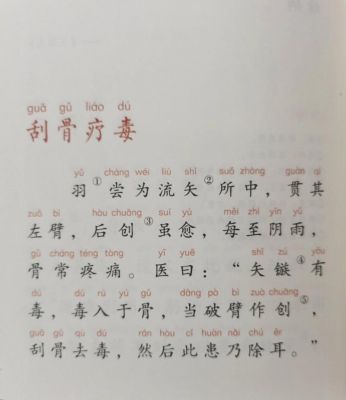 guā gǔ liáo dú
刮骨疗毒
yǔ cháng wéi liú shǐ suǒ zhòng guàn qí
羽①尝为流矢②所中，贯其
zuǒ bì hòu chuāng suī yù měi zhì yīn yǔ
左臂，后创③虽愈，每至阴雨，
gǔ cháng téng tòng yī yuē shǐ zú yǒu
骨常疼痛。医曰：“矢镞④有
dú dú rù yú gǔ dāng pò bì zuò chuāng
毒，毒入于骨，当破臂作创⑤，
guā gǔ qù dú rán hòu cǐ huàn nǎi chú ěr
刮骨去毒，然后此患乃除耳。”